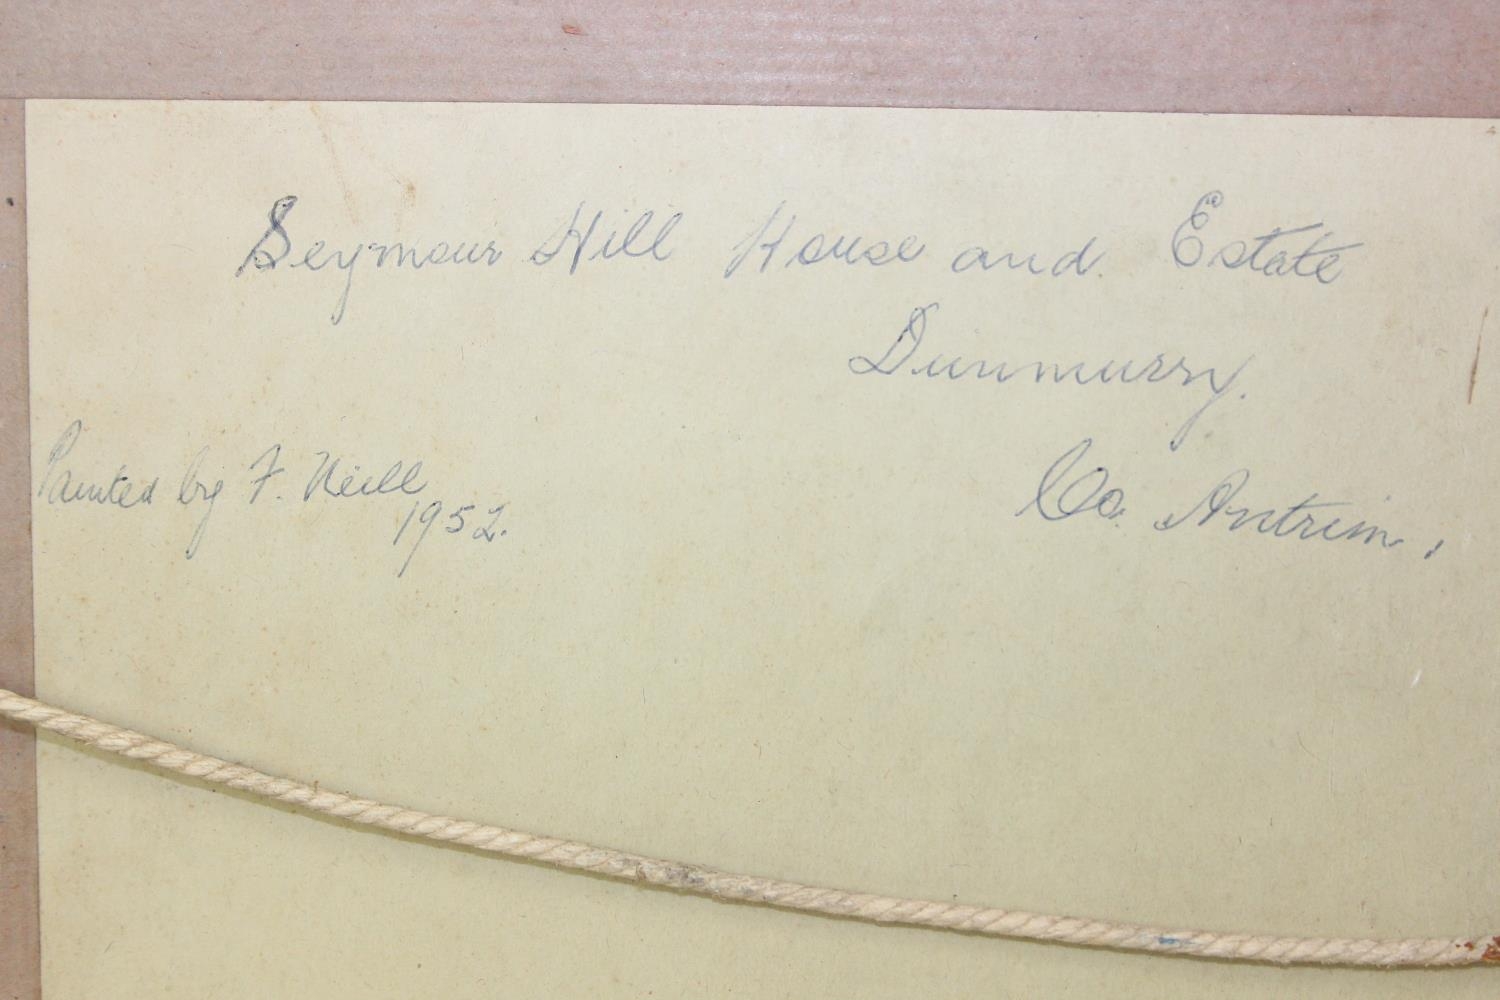 Seymour Hill House and Estate
Dunmurry.
Co. Antrim.
Painted by F. Neill
1952.